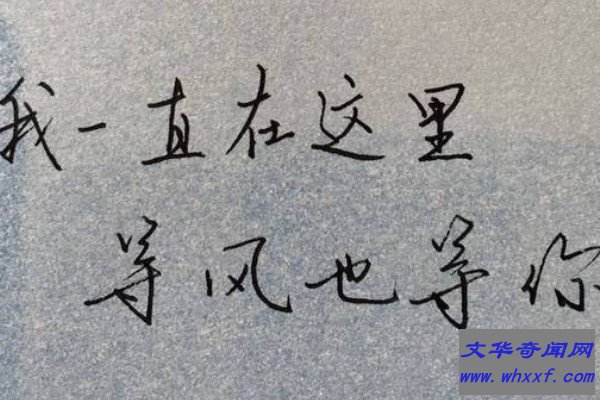 我一直在这里
等风也等你
文华奇闻网
www.whxxf.com